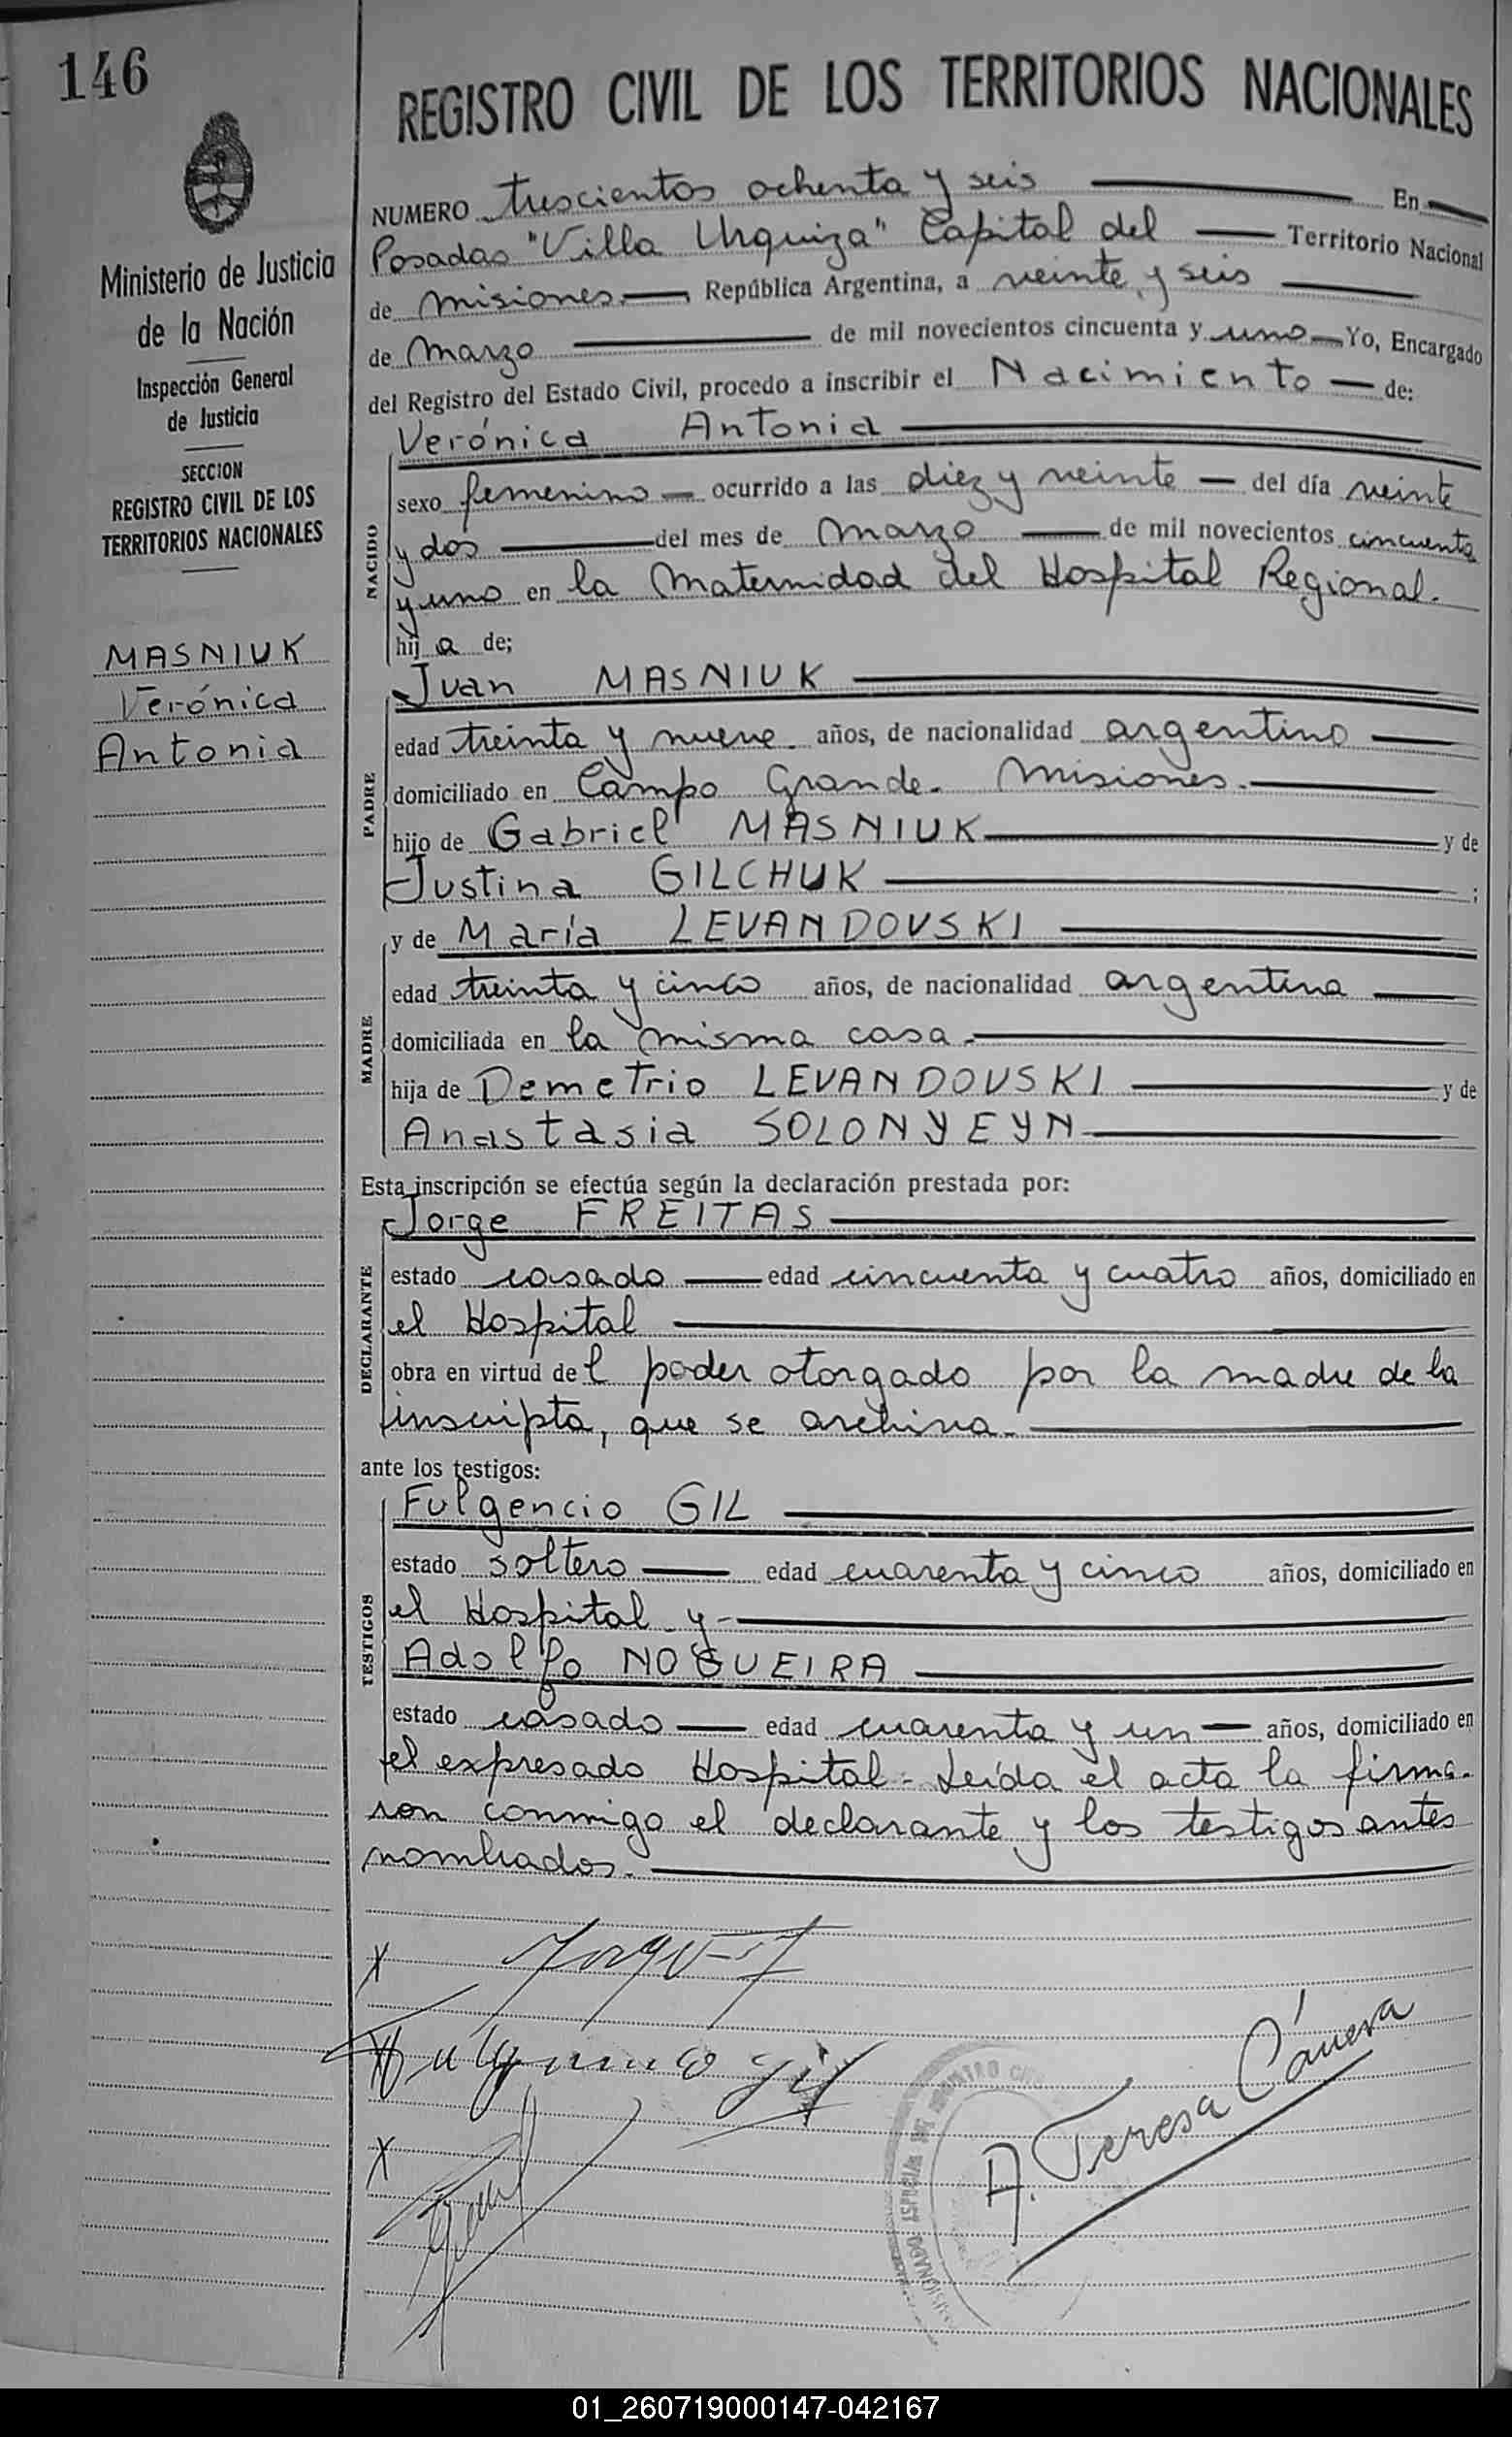 146
REGISTRO CIVIL DE LOS TERRITORIOS NACIONALES
Ministerio de Justicia
de la Nación
Inspección General
de Justicia
SECCION
REGISTRO CIVIL DE LOS
TERRITORIOS NACIONALES
MASNIUK
Verónica
Antonia
NUMERO trescientos ochenta y seis En
Posadas "Villa Urquiza" Capital del Territorio Nacional
de Misiones. República Argentina, a veinte y seis
de Marzo de mil novecientos cincuenta y uno Yo, Encargado
del Registro del Estado Civil, procedo a inscribir el Nacimiento de:
Verónica Antonia
NACIDO
sexo femenino ocurrido a las diez y veinte del día veinte
y dos del mes de Marzo de mil novecientos cincuenta
y uno en la Maternidad del Hospital Regional.
hij a de;
Juan MASNIUK
PADRE
edad treinta y nueve años, de nacionalidad argentino
domiciliado en Campo Grande. Misiones.
hijo de Gabriel MASNIUK y de
Justina GILCHUK ;
y de María LEVANDOVSKI
MADRE
edad treinta y cinco años, de nacionalidad argentina
domiciliada en la misma casa.
hija de Demetrio LEVANDOVSKI y de
Anastasia SOLONYEYN
Esta inscripción se efectúa según la declaración prestada por:
Jorge FREITAS
DECLARANTE
estado casado edad cincuenta y cuatro años, domiciliado en
el Hospital
obra en virtud del poder otorgado por la madre de la
inscripta, que se archiva.
ante los testigos:
Fulgencio GIL
TESTIGOS
estado soltero edad cuarenta y cinco años, domiciliado en
el Hospital y
Adolfo NOGUEIRA
estado casado edad cuarenta y un años, domiciliado en
el expresado Hospital. Leída el acta la firma-
ron conmigo el declarante y los testigos antes
nombrados.
X
X Fulgencio Gil
X
A. Teresa Cánera
01_260719000147-042167